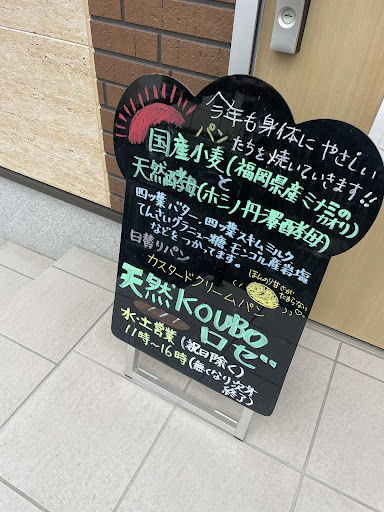 今年も身体にやさしい
パンたちを焼いていきます!!
国産小麦(福岡県産ミナミのカオリ)
と
天然酵母(ホシノ丹澤酵母)
四ッ葉バター 四ッ葉スキムミルク
てんさいグラニュー糖 モンゴル産岩塩
などをつかってます
日替りパン
カスタードクリームパン
ほんのり甘さがたまらない♡
天然KOUBO
ロゼ
水・土営業(祝日除く)
11時〜16時(無くなり次第終了)